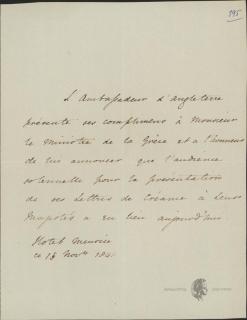 195
L'Ambassadeur d'Angleterre
présente ses complimens à Monsieur
le Ministre de la Grèce et a l'honneur
de lui annoncer que l'audience
solennelle pour la présentation
de ses Lettres de Créance à Leurs
Majestés a eu lieu aujourd'hui
Hotel Meurice
ce 15 Novbre